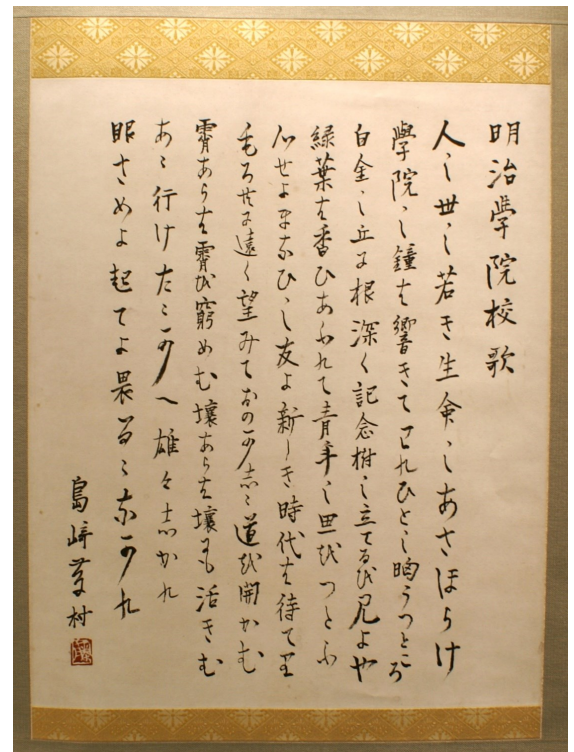 明治學院校歌
人の世の若き生命のあさほらけ
學院の鐘は響きてわれひとの胸うつところ
白金の丘に根深く記念樹の立てるを見よや
緑葉は香ひあふれて青年の思をつとふ
心せよまなひの友よ新しき時代は待てり
もろ共に遠く望みておのかしゝ道を開かむ
霄あらは霄を窮めむ壤あらは壤にも活きむ
あゝ行けたゝかへ雄々しかれ
眼さめよ起てよ畏るゝなかれ
島崎藤村